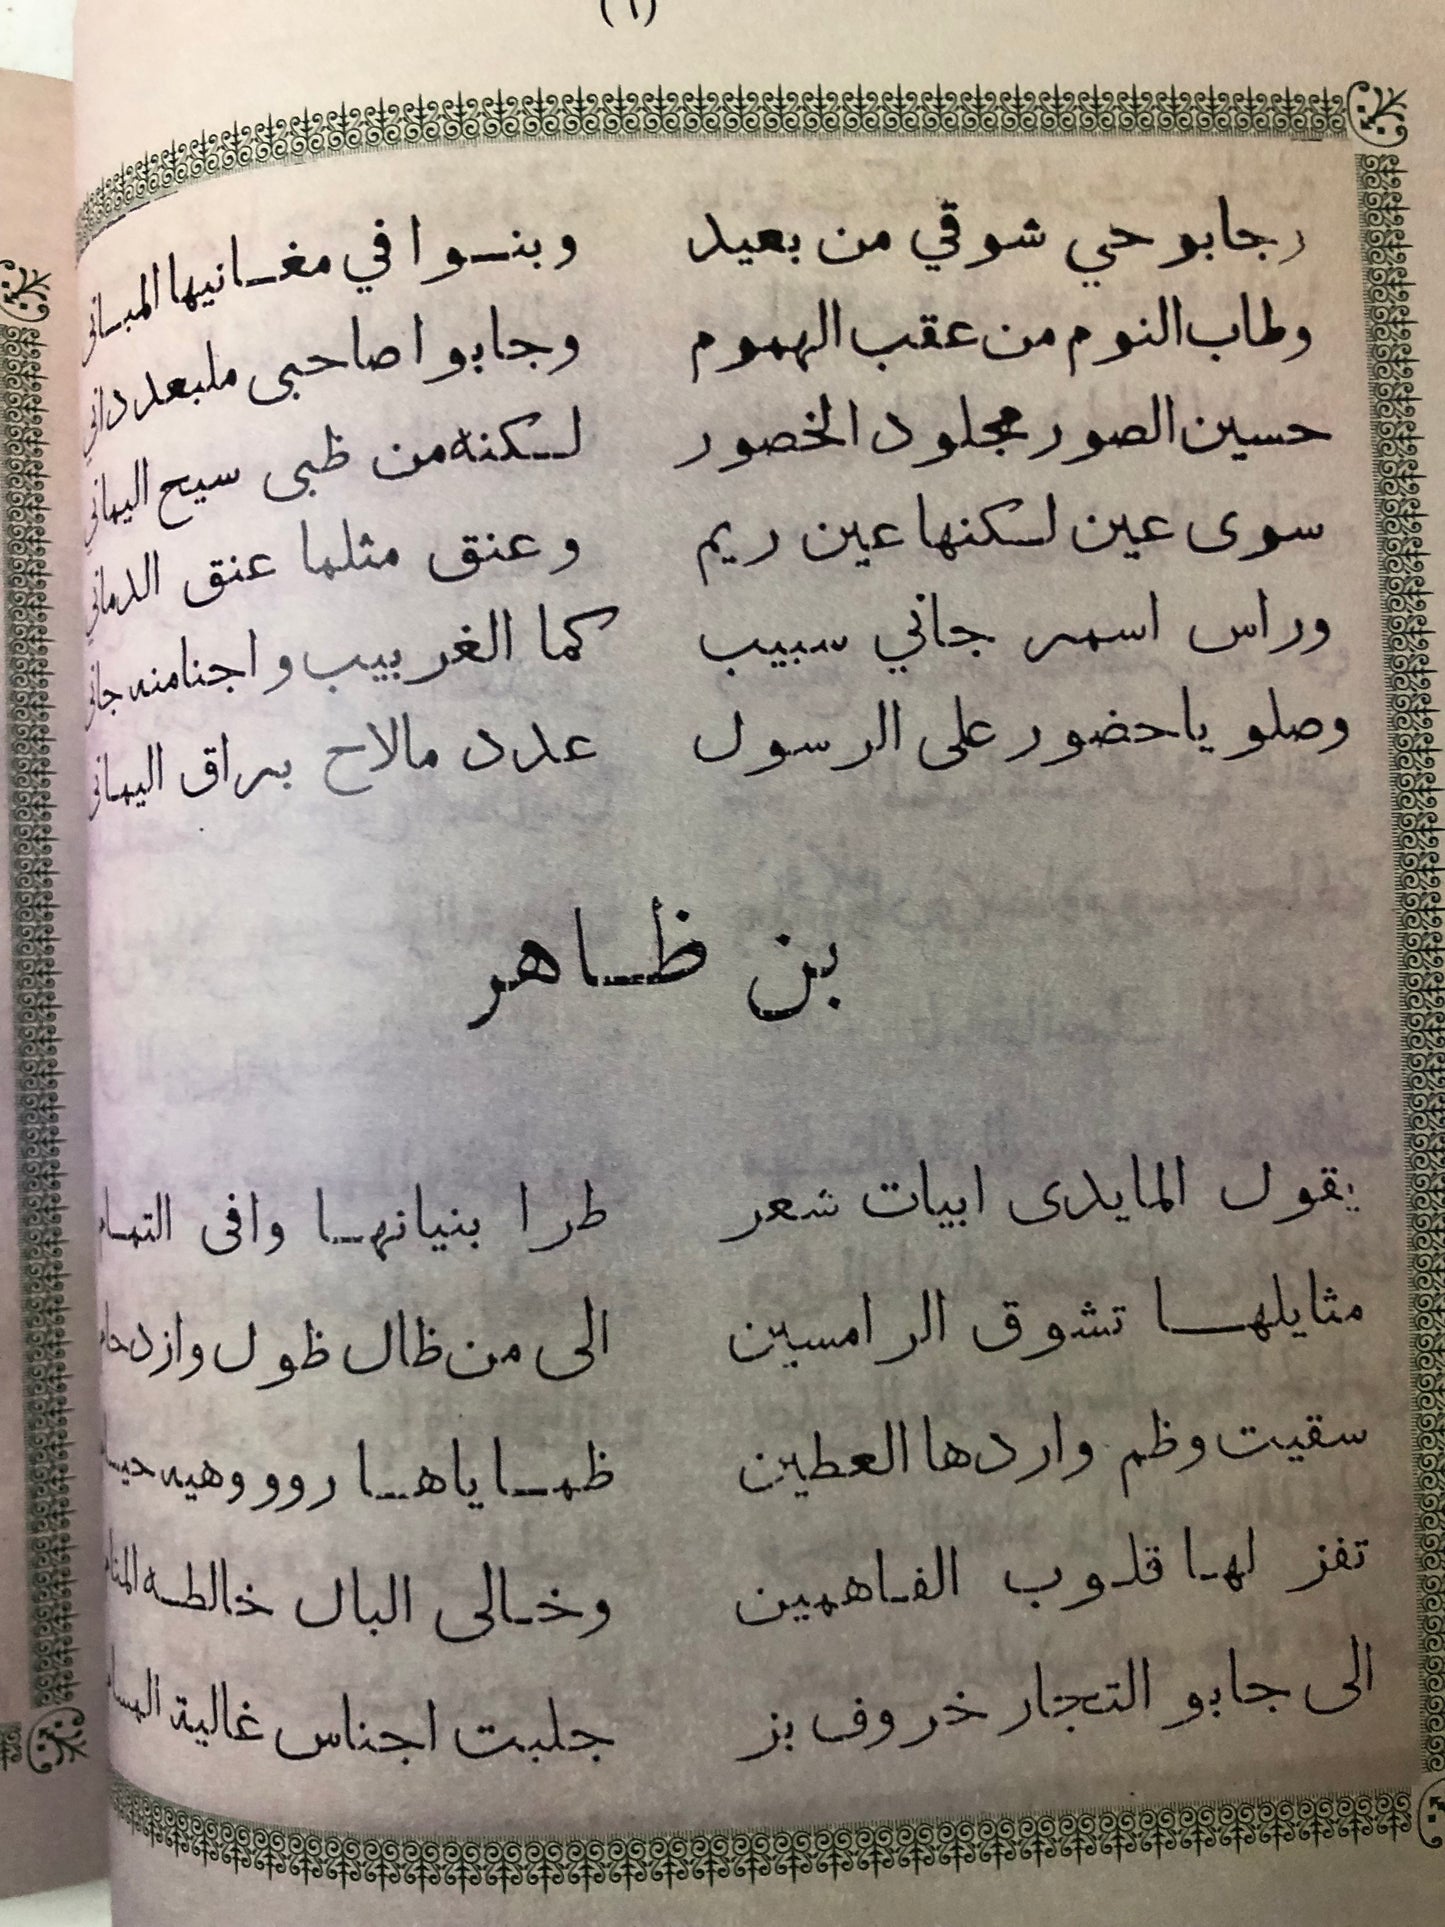 (٦)
وجابو حي شوقي من بعيد وبنوا في مغانيها المباني
وطاب النوم من عقب الهموم وجابوا صاحبى ملبعد داني
حسين الصور مجلود الخصور لكنه من ظبى سيح اليماني
سوى عين لكنها عين ريم وعنق مثلها عنق الدماني
وراس اسمر جاني سبيب كما الغربيب واجنا منه جاني
وصلو ياحضور على الرسول عدد مالاح براق اليماني
بن ظاهر
يقول المايدى ابيات شعر طرا بنيانها وافى التمام
مثايلها تشوق الرامسين الى من ظال ظول وازدحام
سقيت وظم واردها العطين ظماياها روو وهيه
تفز لها قلوب الفاهمين وخالى البال خالطه المنام
الى جابو التجار خروف بز جلبت اجناس غالية